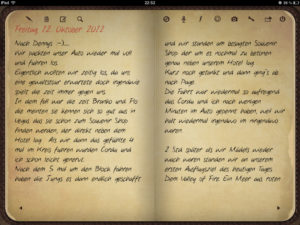 iPod
22:52
Freitag 12. Oktober 2012
Nach Dennys :-)...
Wir packten unser Auto wieder mal voll
und fuhren los.
Eigentlich wollten wir zeitig los, da uns
eine gewaltiges erwartete doch irgendwie
spielt die Zeit immer gegen uns.
In dem Fall war die Zeit Bianko und Pio
die meinten sie kennen sich so gut aus in
Vegas das sie schon zum Souvenir Shop
finden werden, der direkt neben dem
Hotel lag. Als wir dann das gefühlte 4
mal im Kreis fuhren wurden Cordu und
ich schon leicht genervt.
Nach dem 5 mal um den Block fuhren
haben die Jungs es dann endlich geschafft
und wir standen am besagten Souvenir
Shop der um es nochmal zu betonen
genau neben unserem Hotel lag.
Kurz noch getankt und dann ging's ab
nach Page.
Die Fahrt war wiedermal so aufregend
das Cordu und ich nach wenigen
Minuten im Auto gepennt haben, weil wir
halt wiedermal irgendwo im nirgendwo
waren.
2 Std später als wir Mädels wieder
wach waren standen wir an unserem
ersten Ausflugsziel des heutigen Tages
Dem Valley of Fire. Ein Meer aus roten